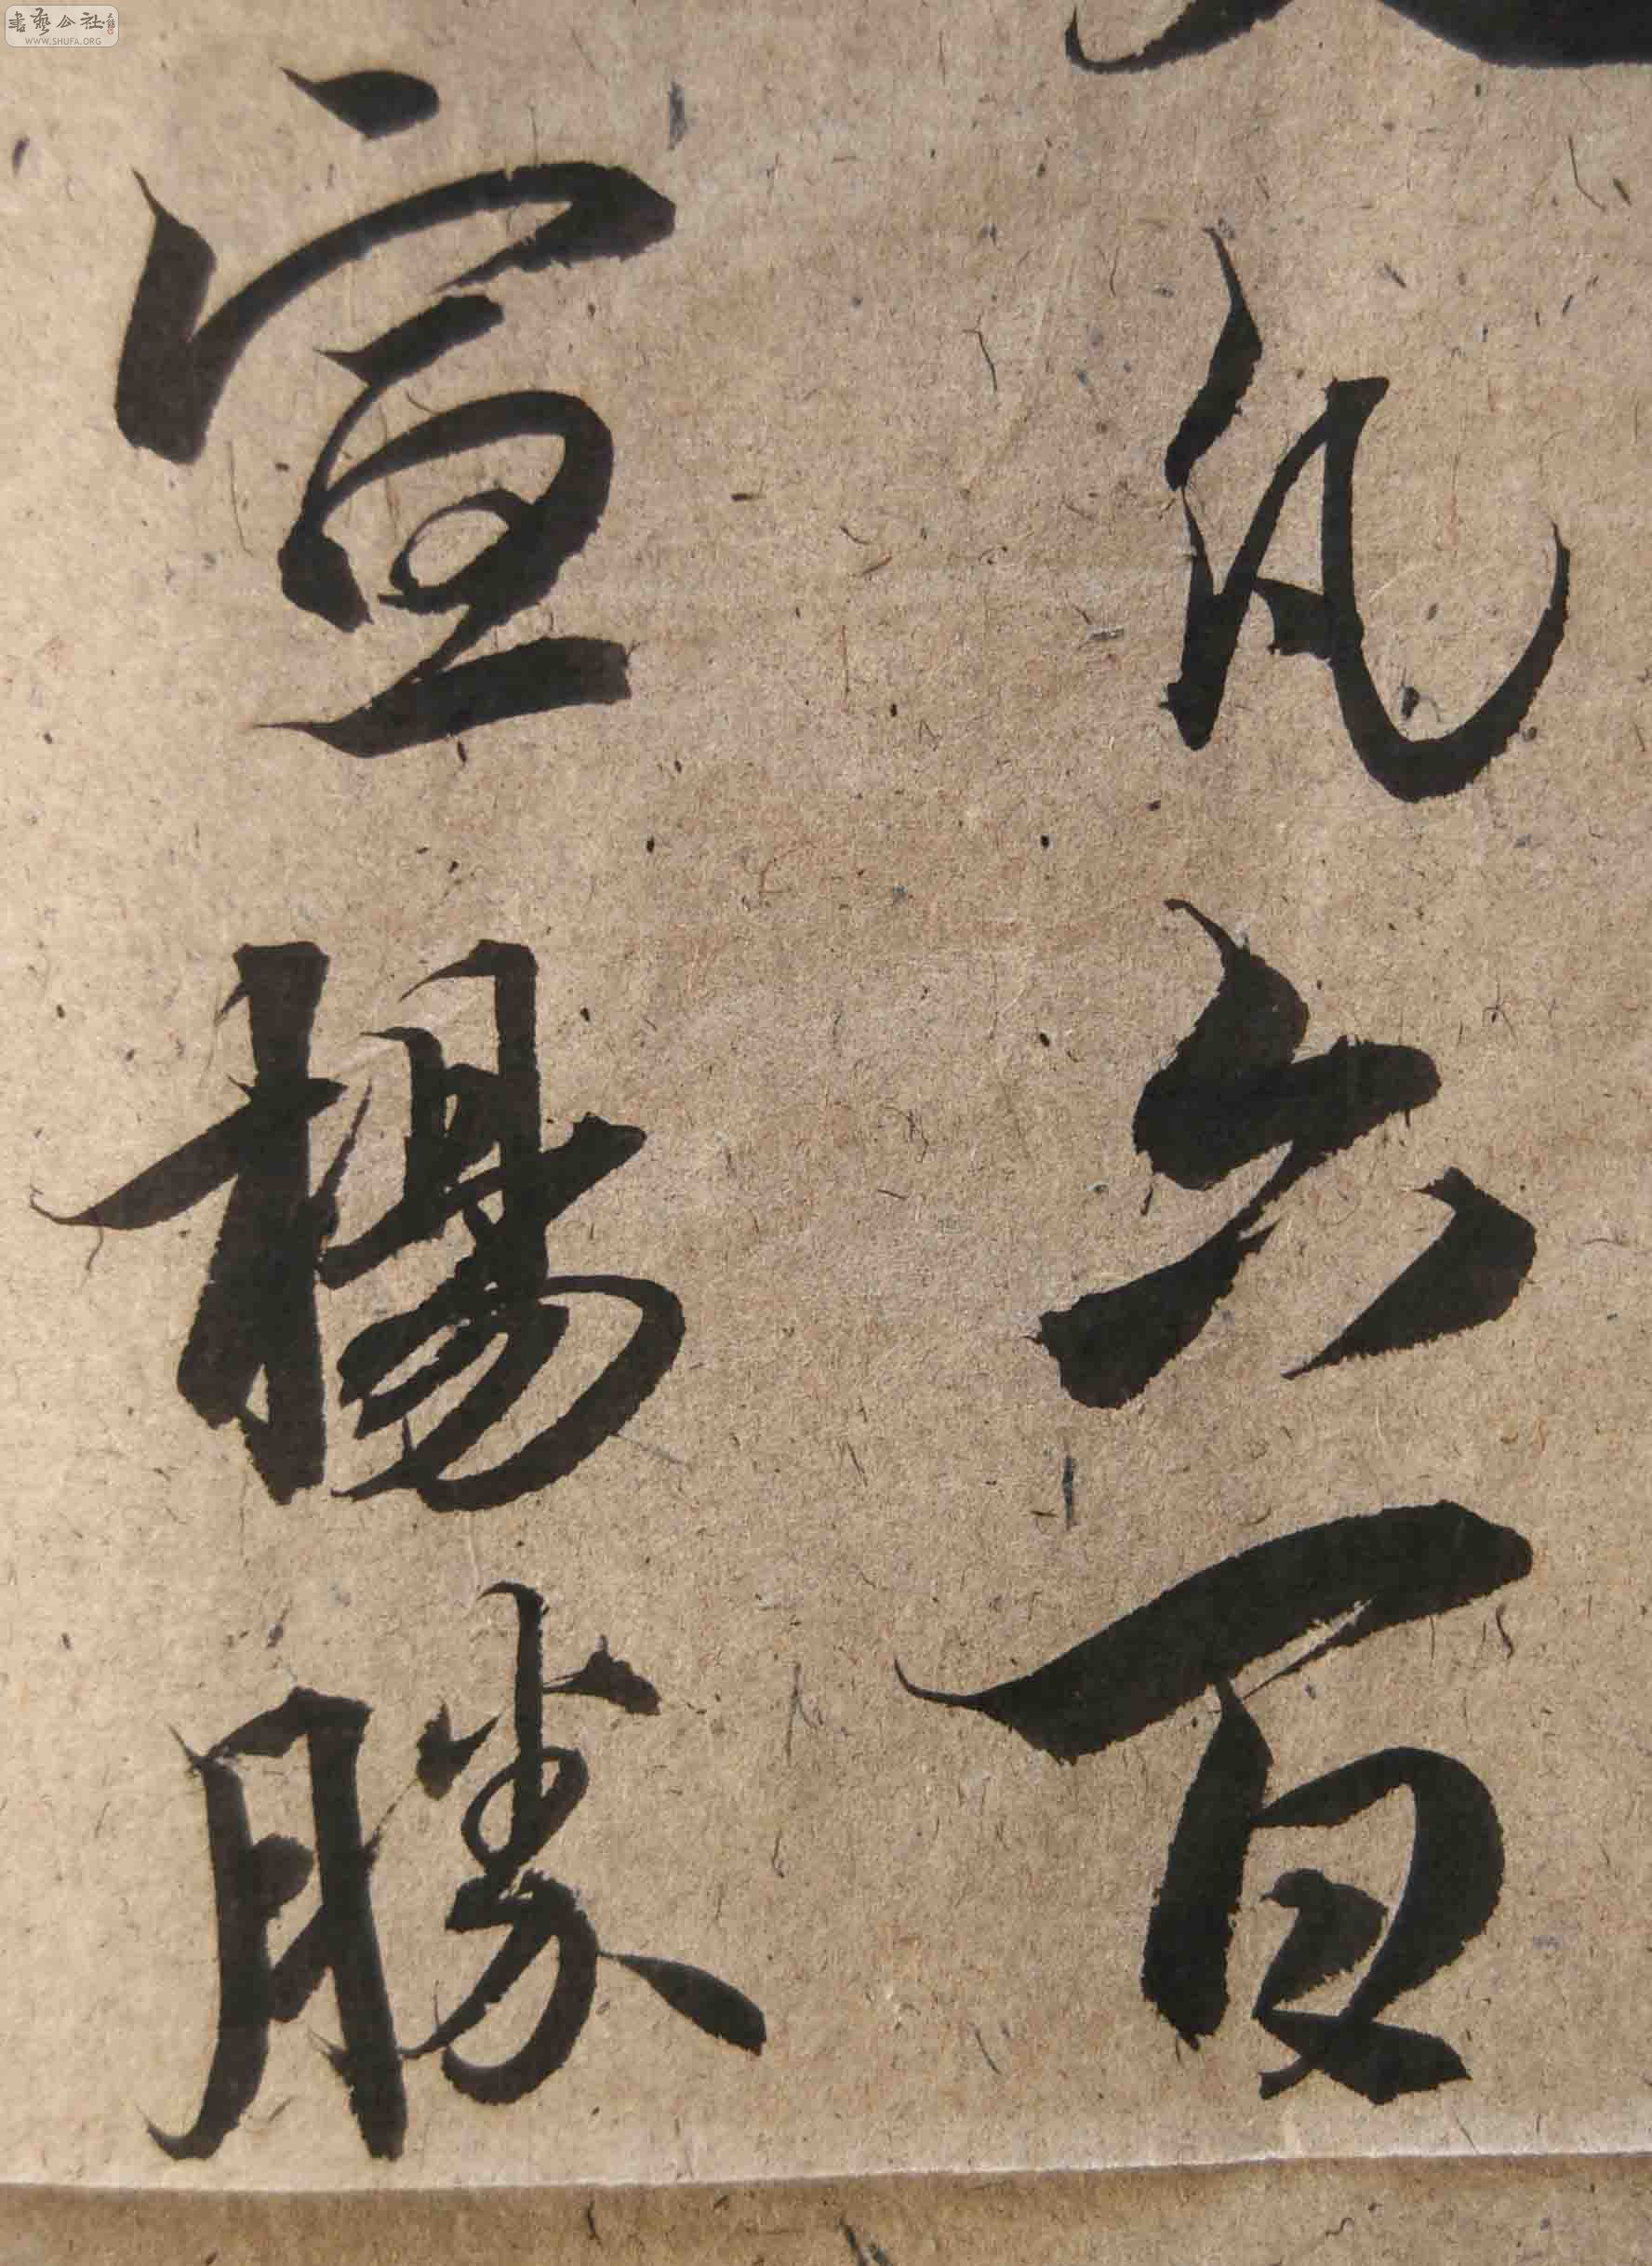 書藝公社
WWW.SHUFA.ORG
凡六百
宣楊勝